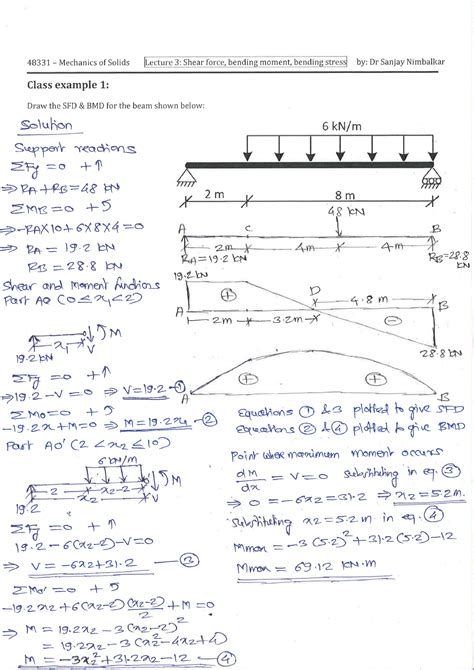 48331 – Mechanics of Solids Lecture 3: Shear force, bending moment, bending stress by: Dr Sanjay Nimbalkar
Class example 1:
Draw the SFD & BMD for the beam shown below:
Solution
Support reactions
ΣFy = 0 + ↑
⇒ RA + RB = 48 kN
ΣMB = 0 +
⇒ -RA×10 + 6×8×4 = 0
⇒ RA = 19.2 kN
RB = 28.8 kN
Shear and moment functions
Part AO (0 ≤ x1 < 2)
x1
M
V
19.2 kN
ΣFy = 0 + ↑
⇒ 19.2 - V = 0 ⇒ V = 19.2 - ①
ΣMo = 0 +
-19.2x + M = 0 ⇒ M = 19.2x1 - ②
Part AO' (2 < x2 ≤ 10)
6 kN/m
M
2 x2-2
V
x2
19.2
ΣFy = 0 + ↑
19.2 - 6(x2-2) - V = 0
⇒ V = -6x2 + 31.2 - ③
ΣMo' = 0 +
-19.2x2 + 6(x2-2)(x2-2)/2 + M = 0
⇒ M = 19.2x2 - 3(x2-2)²
= 19.2x2 - 3(x2² - 4x2 + 4)
M = -3x2² + 31.2x2 - 12 - ④
6 kN/m
2 m 8 m
48 kN
A C B
2m 4m 4m
RA = 19.2 kN RB = 28.8 kN
19.2 kN
+
D 4.8 m
A B
2m 3.2m
−
28.8 kN
+ +
A B
Equations ① & 3 plotted to give SFD
Equations ② & ④ plotted to give BMD
Point where maximum moment occurs
dM/dx = V = 0 substituting in eq. ③
⇒ 0 = -6x2 + 31.2 ⇒ x2 = 5.2 m.
Substituting x2 = 5.2 m in eq. ④
Mmax = -3(5.2)² + 31.2(5.2) - 12
Mmax = 69.12 kN.m